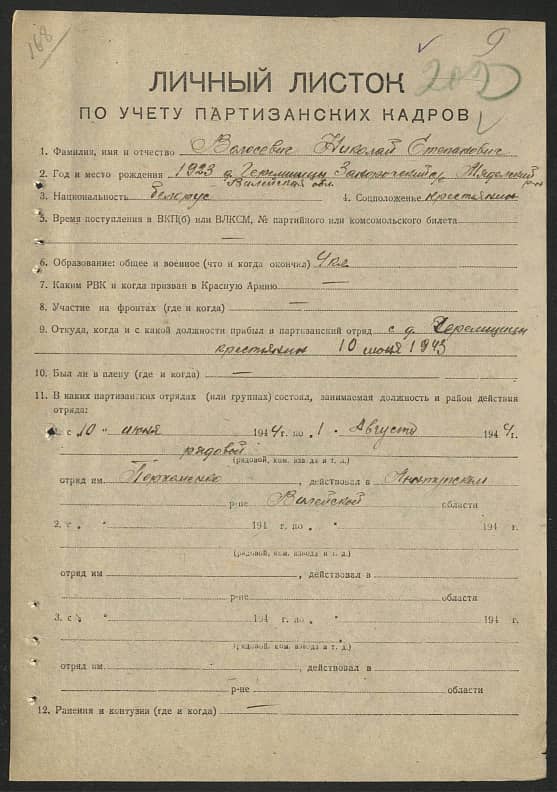 168
9
202
ЛИЧНЫЙ ЛИСТОК
ПО УЧЕТУ ПАРТИЗАНСКИХ КАДРОВ
1. Фамилия, имя и отчество Волосевич Николай Степанович
2. Год и место рождения 1923 д. Черемшицы Мядельский р-н
Вилейская обл.
3. Национальность белорус 4. Соцположение крестьянин
5. Время поступления в ВКП(б) или ВЛКСМ, № партийного или комсомольского билета
—
6. Образование: общее и военное (что и когда окончил) 4 кл
7. Каким РВК и когда призван в Красную Армию —
8. Участие на фронтах (где и когда) —
9. Откуда, когда и с какой должности прибыл в партизанский отряд с д. Черемшицы
крестьянин 10 июня 1943
10. Был ли в плену (где и когда) —
11. В каких партизанских отрядах (или группах) состоял, занимаемая должность и район действия
отряда:
1. с „10 " июня 1944 г. по „1 . Августа 1944 г.
рядовой
(рядовой, ком. взвода и т. д.)
отряд им Пархоменко, действовал в
р-не Вилейской области
2. с „ " 194 г. по „ " 194 г.
(рядовой, ком. взвода и т. д.)
отряд им , действовал в
р-не области
3. с „ " 194 г. по „ " 194 г.
(рядовой, ком. взвода и т. д.)
отряд им , действовал в
р-не области
12. Ранения и контузии (где и когда) —